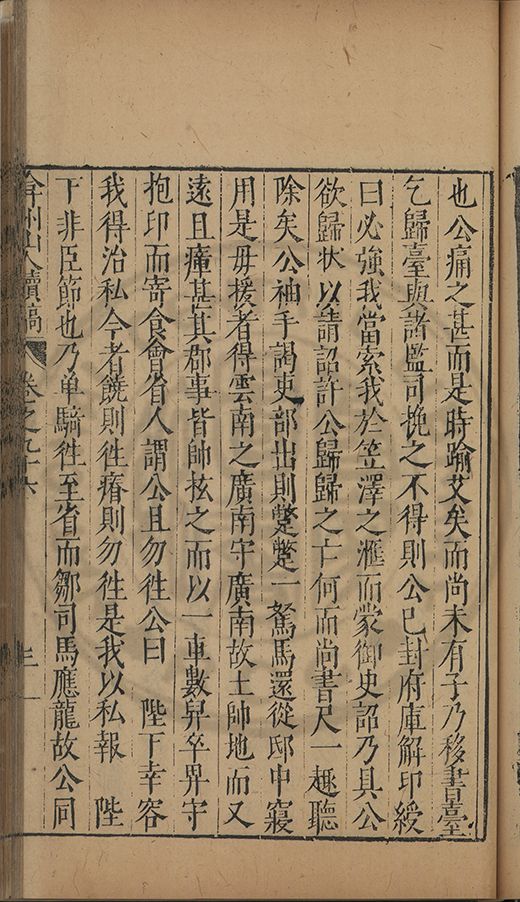 也公痛之甚而是時踰艾矣而尚未有子乃移書臺
乞歸臺與諸監司挽之不得則公已封府庫解印綬
曰必強我當索我於笠澤之滙而蒙御史詔乃具公
欲歸狀以請詔許公歸歸之亡何而尚書尺一趣聽
除矣公袖手謁吏部出則蹩蹩一駑馬還從邸中寢
用是毋援者得雲南之廣南守廣南故土帥地而又
遠且瘴甚其郡事皆帥柭之而以一車數舁卒畀守
抱印而寄食會省人謂公且勿徃公曰 陛下幸容
我得治私令者饒則徃瘠則勿徃是我以私報 陛
下非臣節也乃單騎徃至省而鄒司馬應龍故公同
弇州山人續稿 卷之九十六 三